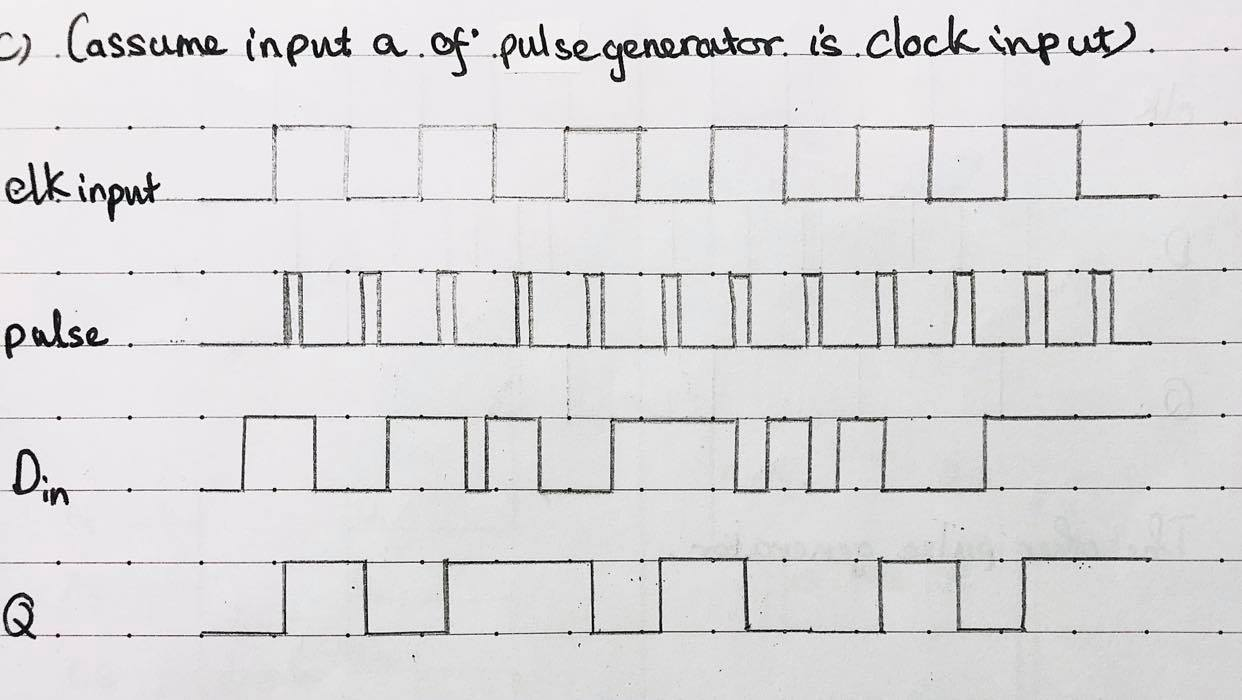 c) (assume input a of pulse generator is clock input).
clk input
pulse
Din
Q